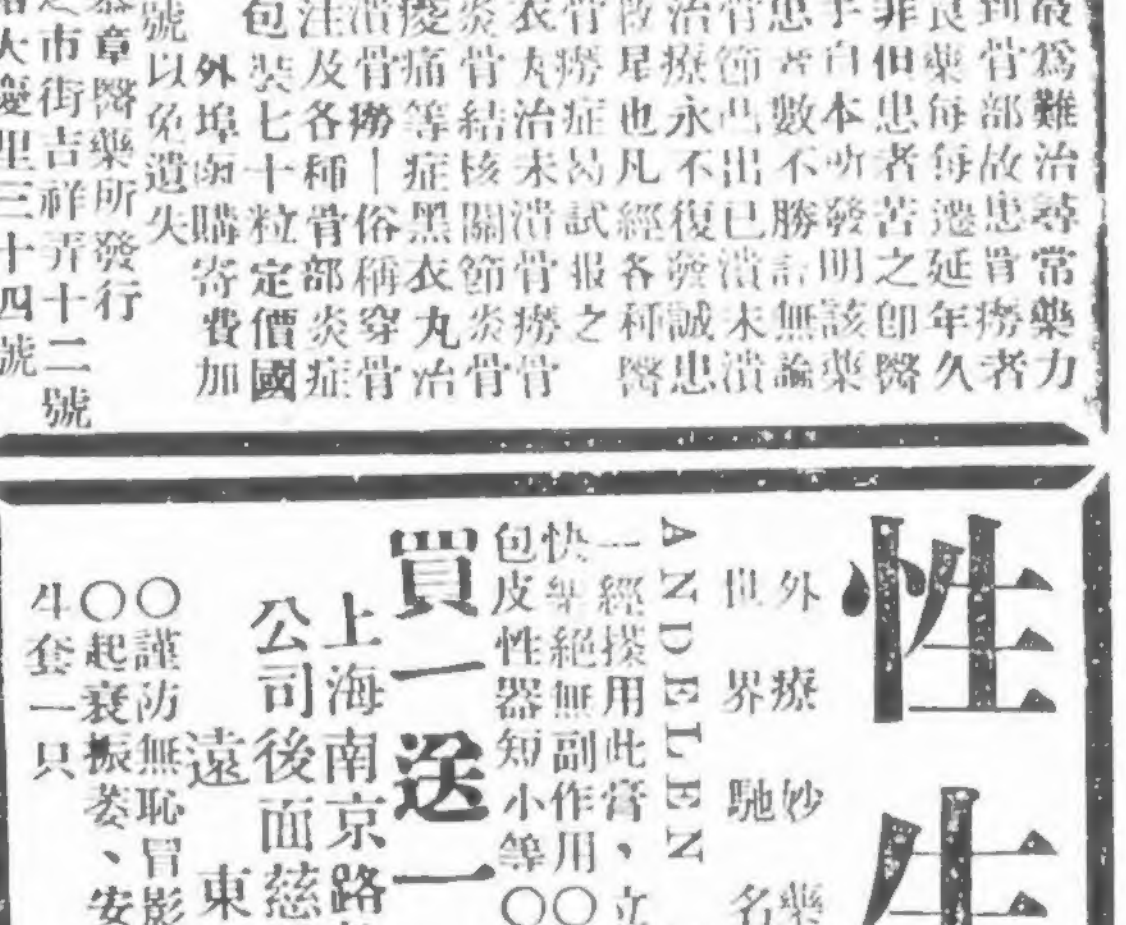 故爲難治尋常藥力
到骨部故患骨癆者
良藥每每遷延年久
非但患者苦之卽醫
手自本所發明該藥
患者數不勝計無論
骨節凸出已潰未潰
治療永不復發誠患
救星也凡經各科醫
骨癆症曷試報之
衣丸治未潰骨癆骨
炎骨結核關節炎骨
痠痛等症黑衣丸治
潰骨癆—俗稱穿骨
注及各種骨部炎症
包裝七十粒定價國
外埠函購寄費加
號以免遺失
章醫藥所發行
市街吉祥弄十二號
大慶里三十四號
性生
外療妙藥
世界馳名
ANDELEN
一經搽用此膏、立
快樂絕無副作用○
包皮性器短小等○
買一送一
上海南京路
公司後面慈
遠東
○謹防無恥冒影
○起衰振萎、安
斗套一只